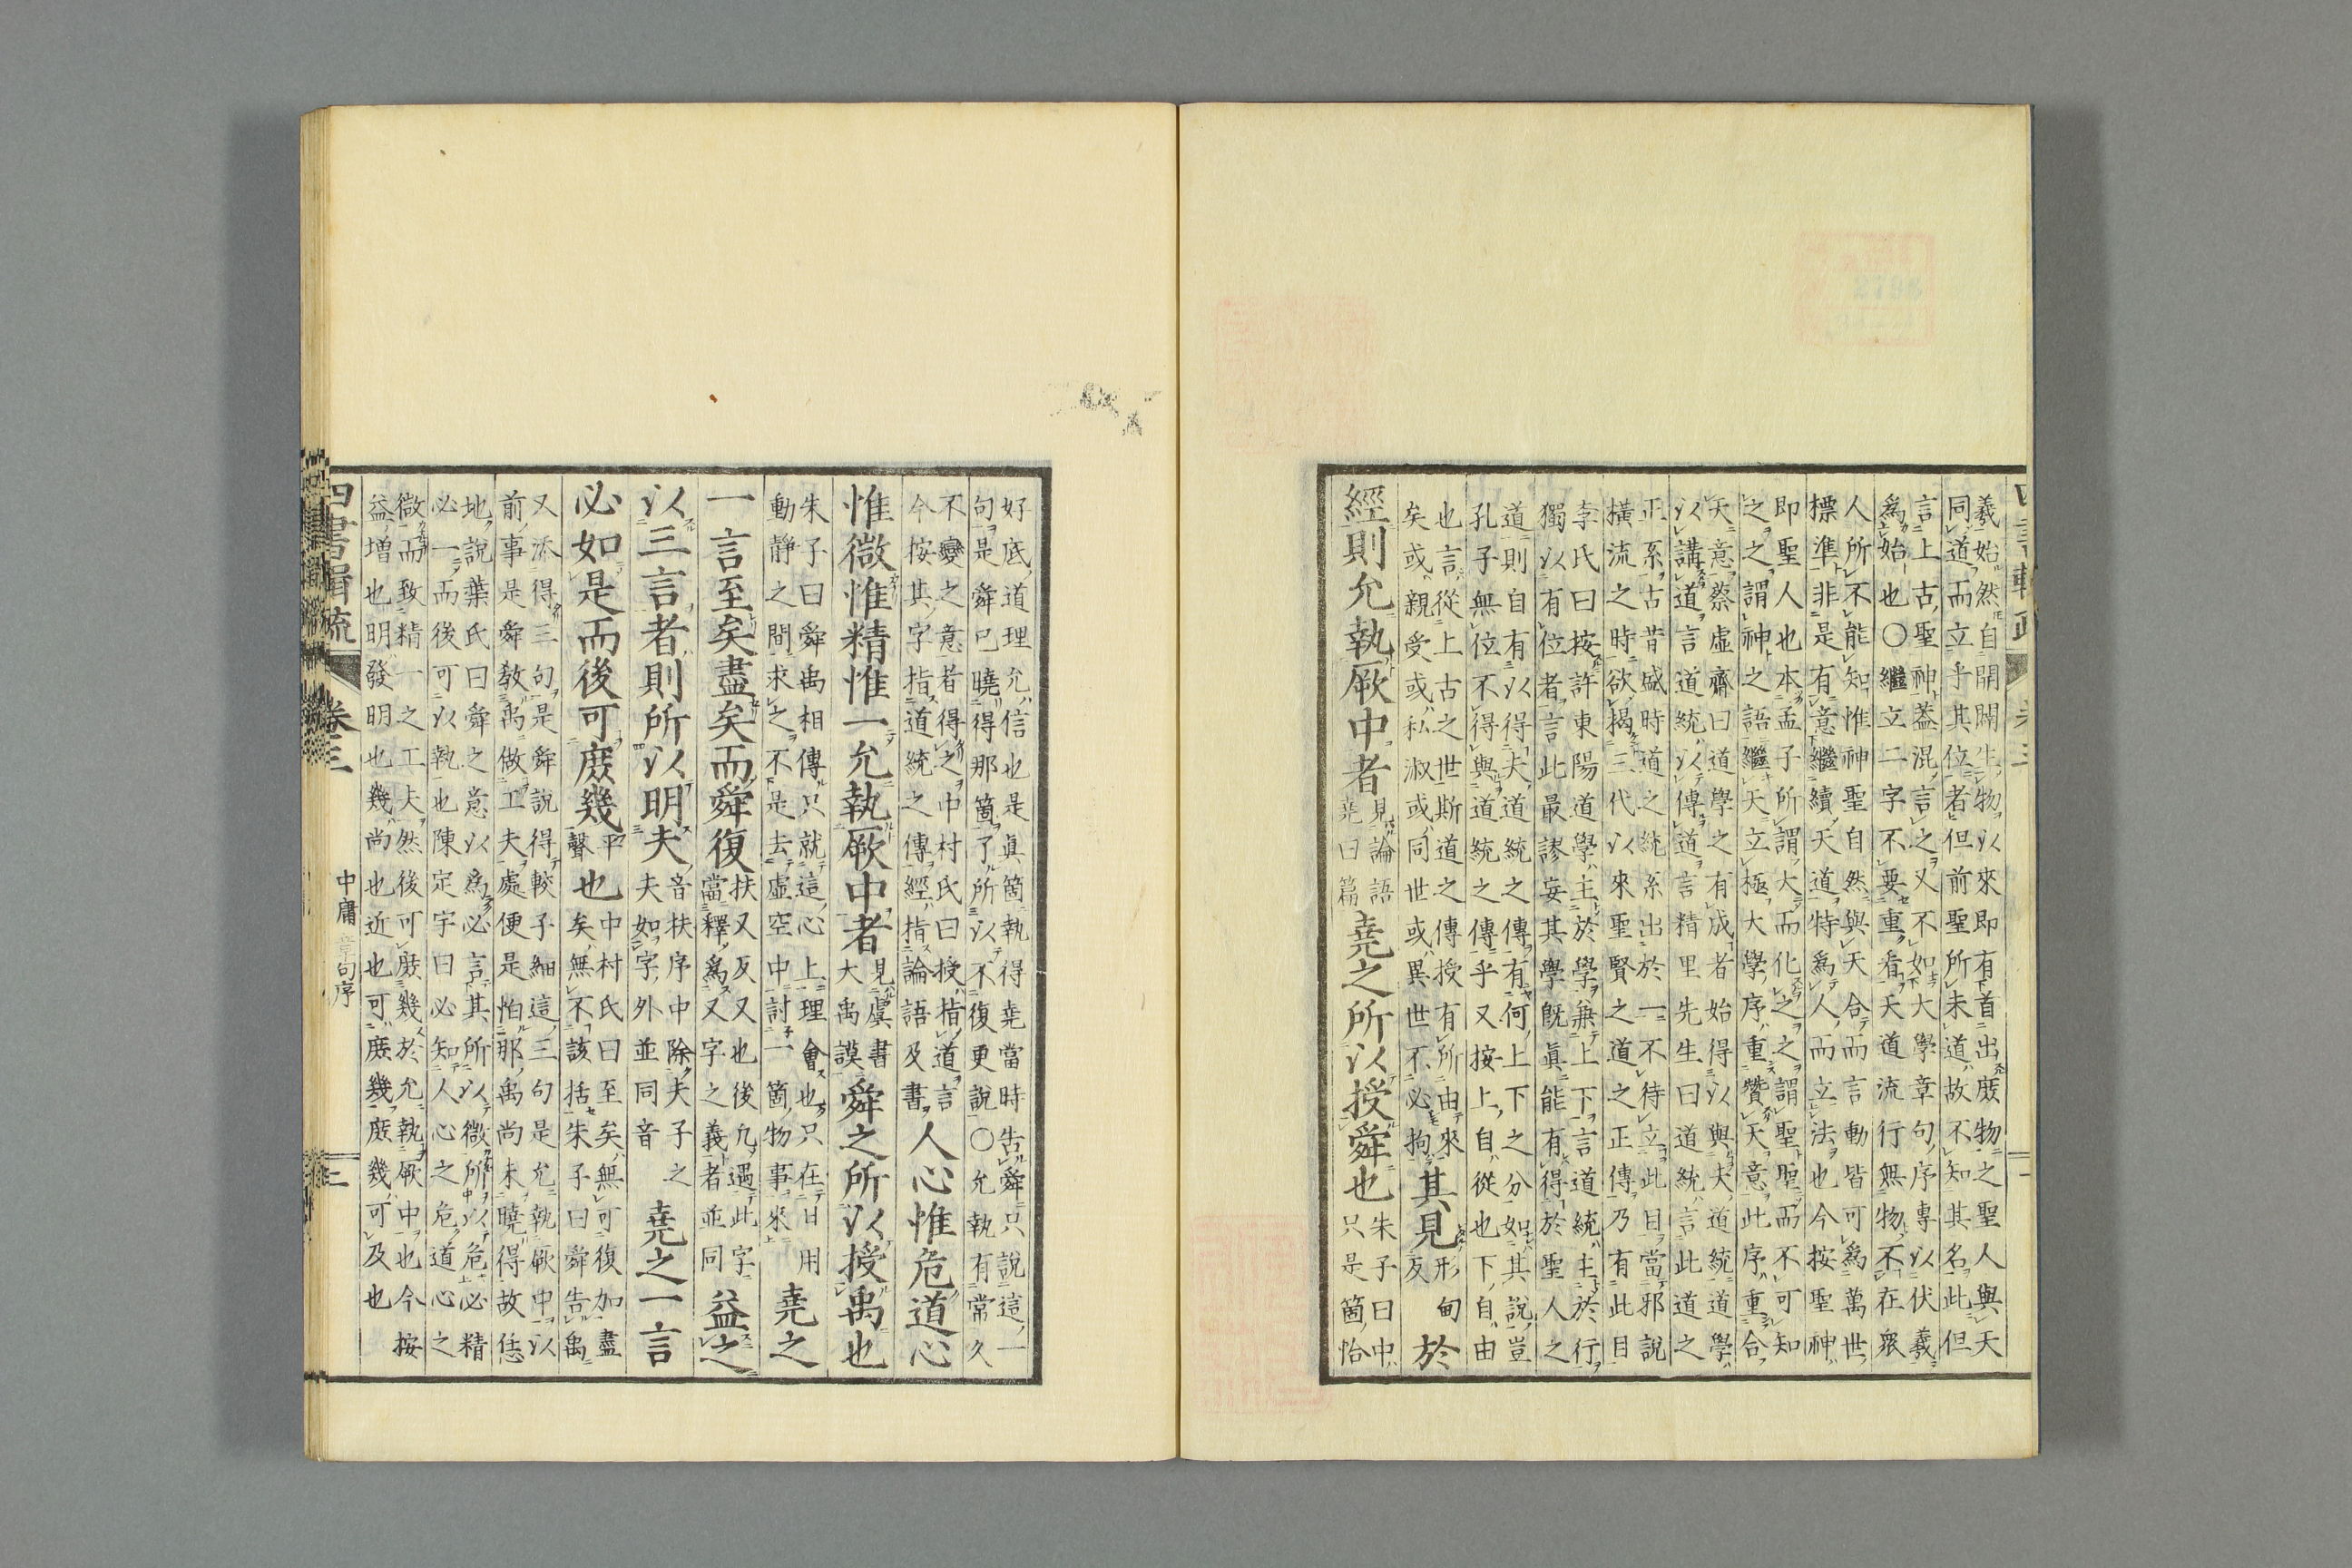 羲始然自開闢生物以來即有首出庻物之聖人與天
同道而立乎其位者但前聖所未道故不知其名此但
言上古聖神葢混言之又不如大學章句序專以伏羲
爲始也○繼立二字不要重看天道流行無物不在衆
人所不能知惟神聖自然與天合而言動皆可爲萬世
標準非是有意繼續天道特爲人而立法也今按聖神
即聖人也本孟子所謂大而化之之謂聖聖而不可知
之之謂神之語繼天立極大學序重贊天意此序重合
天意蔡虛齋曰道學之有成者始得以與夫道統道學
以講道言道統以傳道言精里先生曰道統言此道之
正系古昔盛時道之統系出於一不待立此目當邪說
橫流之時欲揭三代以來聖賢之道之正傳乃有此目
李氏曰按許東陽道學主於學兼上下言道統主於行
獨以有位者言此最謬妄其學旣眞能有得於聖人之
道則自有以得夫道統之傳有何上下之分如其說豈
孔子無位不得與道統之傳乎又按上自從也下自由
也言從上古之世斯道之傳授有所由來
矣或親受或私淑或同世或異世不必拘
其見
形甸
反
於
經則允執厥中者
見論語
堯曰篇
堯之所以授舜也
朱子曰中
只是箇恰
好底道理允信也是眞箇執得堯當時告舜只說這一
句是舜已曉得那箇了所以不復更說○允執有常久
不變之意若得之中村氏曰授指道言
今按其字指道統之傳經指論語及書
人心惟危道心
惟微惟精惟一允執厥中者
見虞書
大禹謨
舜之所以授禹也
朱子曰舜禹相傳只就這心上理會也只在日用
動静之間求之不是去虛空中討一箇物事來
堯之
一言至矣盡矣而舜復
扶又反又也後凡遇此字
當釋爲又字之義者並同
益之
以三言者則所以明夫
音扶序中除夫子之
夫如字外並同音
堯之一言
必如是而後可庻幾
平
聲
也
中村氏曰至矣無可復加盡
矣無不該括朱子曰舜告禹
又添得三句是舜說得較子細這三句是允執厥中以
前事是舜敎禹做工夫處便是怕那禹尚未曉得故恁
地說葉氏曰舜之意以爲必言其所以微所以危必精
必一而後可以執也陳定宇曰必知人心之危道心之
微而致精一之工夫然後可庻幾於允執厥中也今按
益增也明發明也幾尚也近也可庻幾庻幾可及也
四書輯疏
卷三
中庸章句序
二